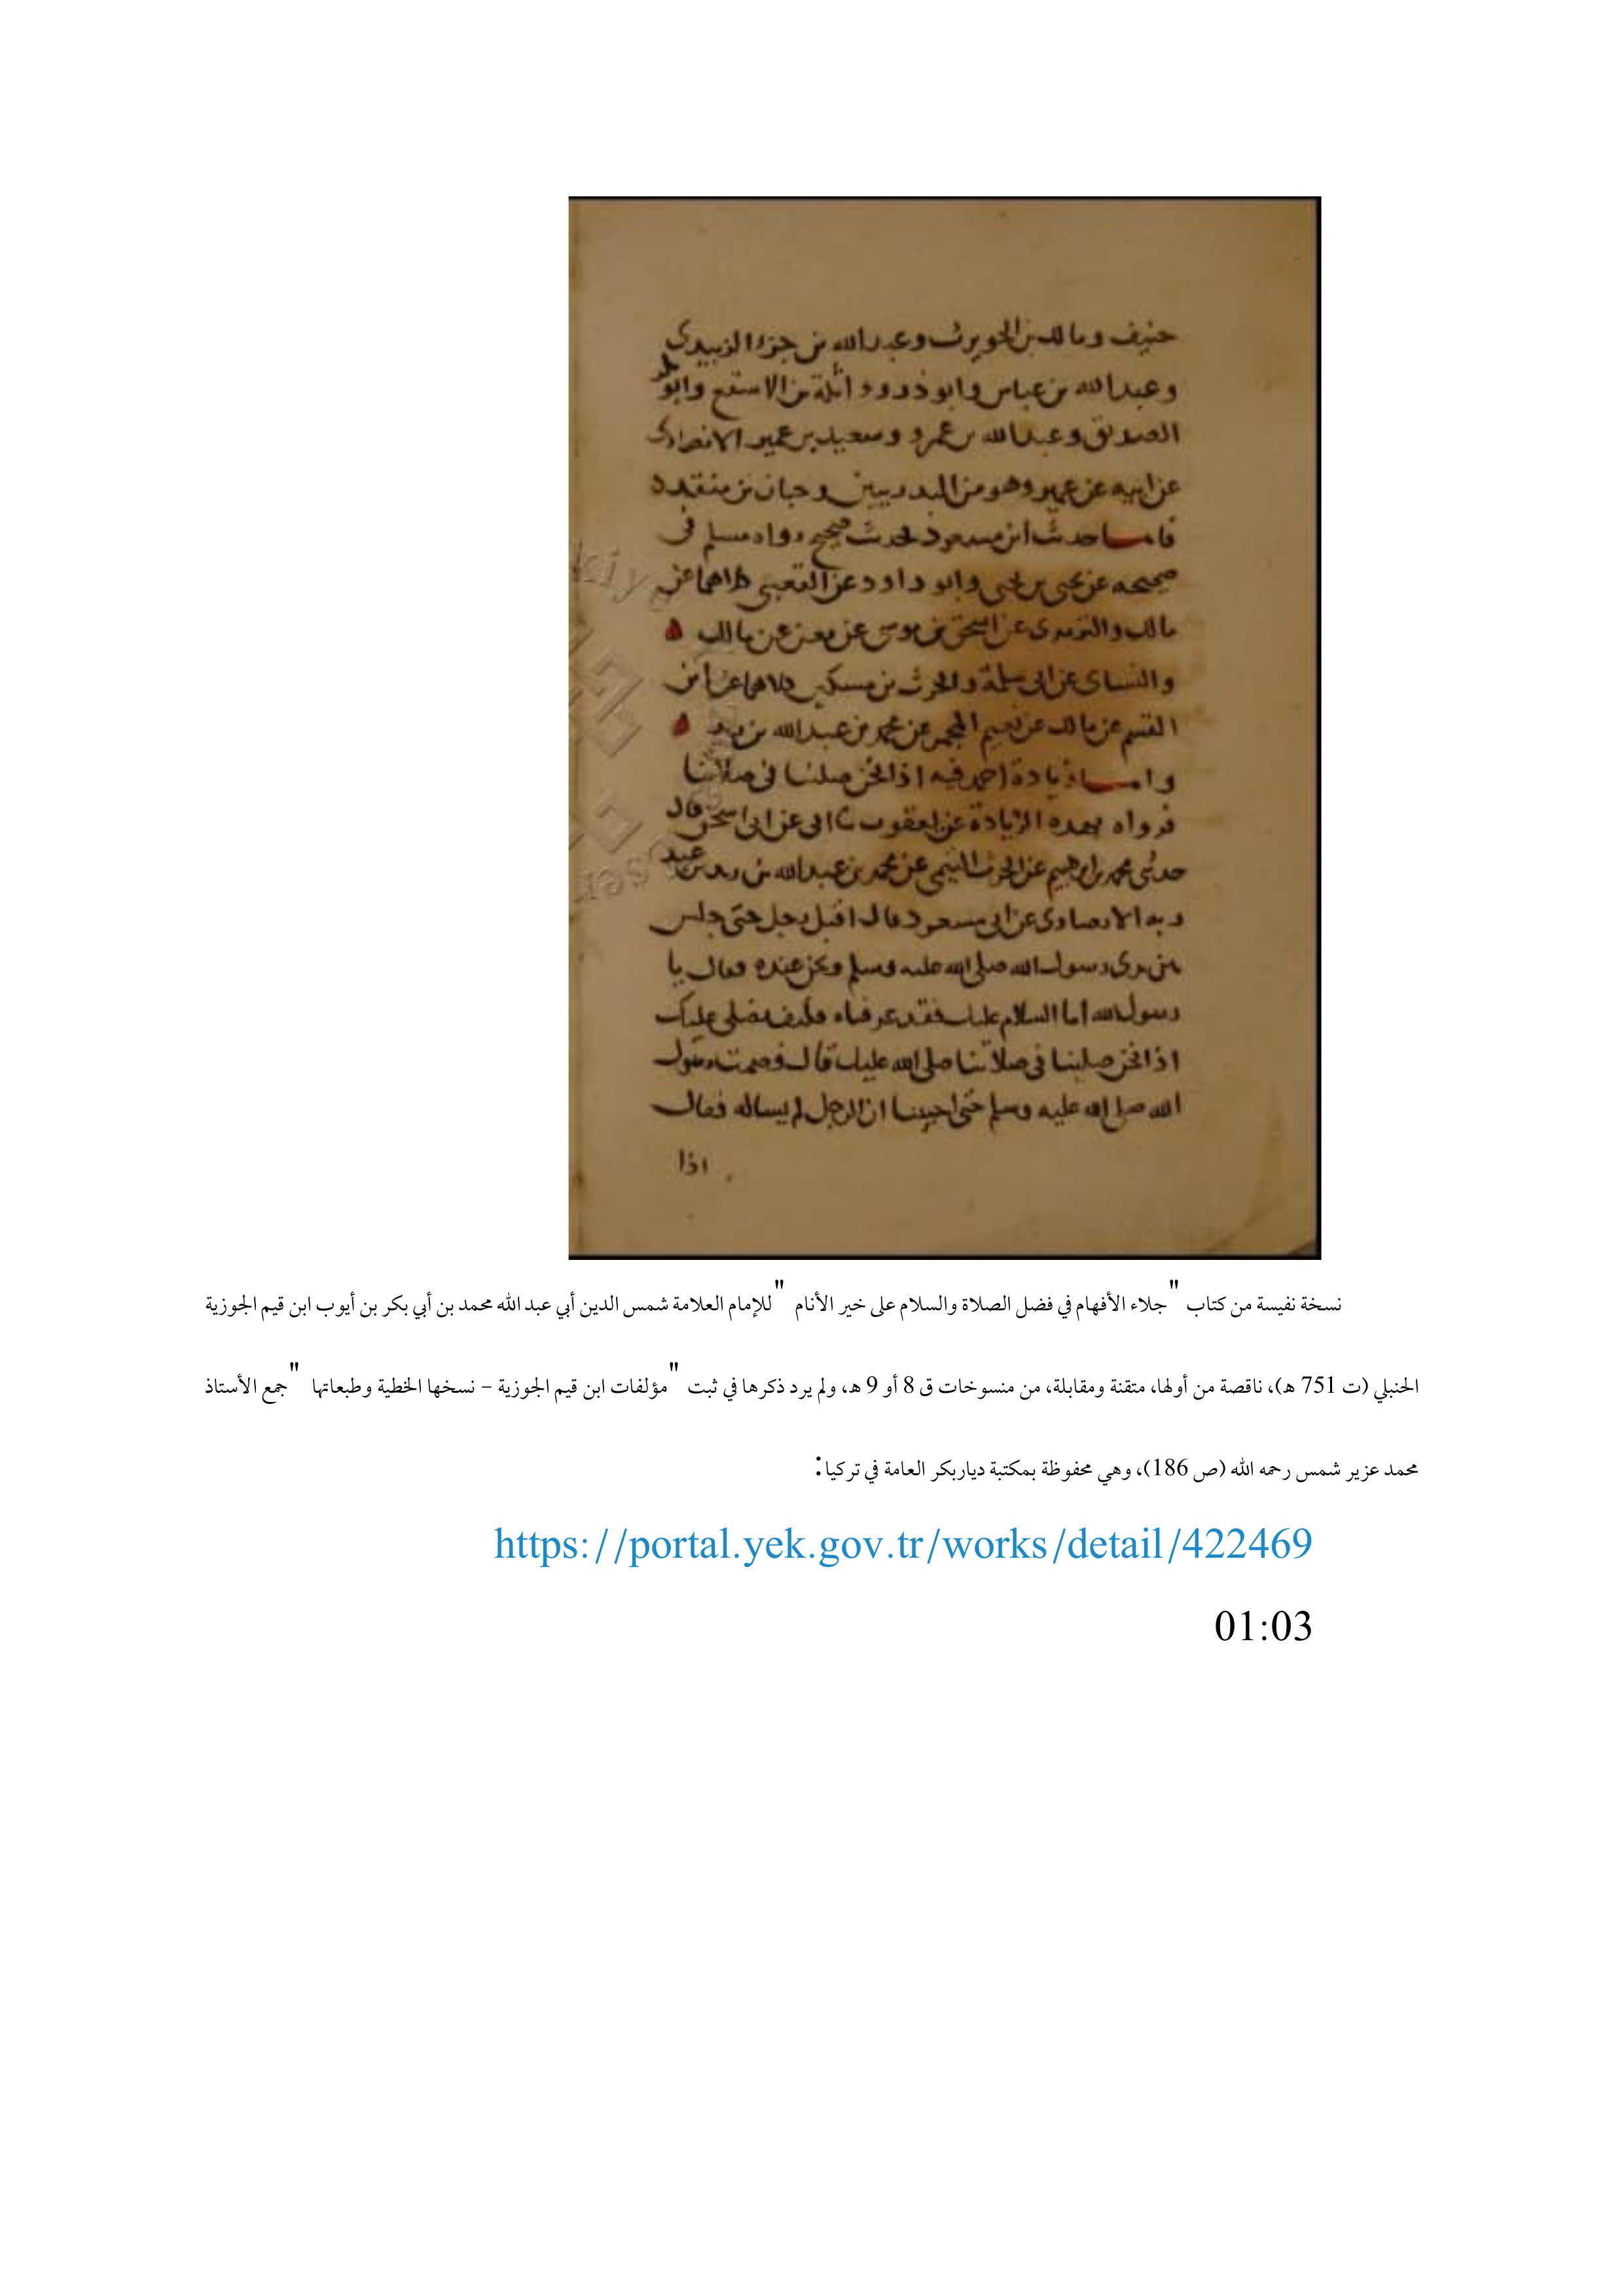 حنيف ومالك بن الحويرث وعبد الله بن جزء الزبيدى
وعبد الله بن عباس وابو ذر وواثلة بن الاسقع وابو بكر
الصديق وعبد الله بن عمرو وسعيد بن عمير الانصارى
عن ابيه عن عمير وهو من البدريين وحبان بن منقد
فاما حدث ابن مسعود فحدث صحيح رواه مسلم فى
صحيحه عن يحيى بن يحيى وابو داود عن القعنبى كلاهما عن
مالك والترمدى عن اسحق بن موسى عن معن عن مالك
والنساى عن ابى سلمة والحرث بن مسكين كلاهما عن ابن
القسم عن مالك عن نعيم المجمر عن محمد بن عبد الله بن زيد
واما زيادة احمد فيه اذا نحن صلينا فى صلاتنا
فرواه بهده الزيادة عن يعقوب ثنا ابى عن ابن اسحق قال
حدثنى محمد بن ابرهيم عن الحرث التيمى عن محمد بن عبد الله بن زيد بن عبد
ربه الانصارى عن ابى مسعود قال اقبل رجل حتى جلس
بين يدى رسول الله صلى الله عليه وسلم ونحن عنده فقال يا
رسول الله اما السلام عليك فقد عرفناه فكيف نصلى عليك
اذا نحن صلينا فى صلاتنا صلى الله عليك قال فصمت رسول
الله صلى الله عليه وسلم حتى احببنا ان الرجل لم يساله فقال
اذا
نسخة نفيسة من كتاب "جلاء الأفهام في فضل الصلاة والسلام على خير الأنام "للإمام العلامة شمس الدين أبي عبد الله محمد بن أبي بكر بن أيوب ابن قيم الجوزية
الحنبلي (ت 751 هـ)، ناقصة من أولها، متقنة ومقابلة، من منسوخات ق 8 أو 9 هـ، ولم يرد ذكرها في ثبت "مؤلفات ابن قيم الجوزية – نسخها الخطية وطبعاتها "جمع الأستاذ
محمد عزير شمس رحمه الله (ص 186)، وهي محفوظة بمكتبة دياربكر العامة في تركيا:
https://portal.yek.gov.tr/works/detail/422469
01:03